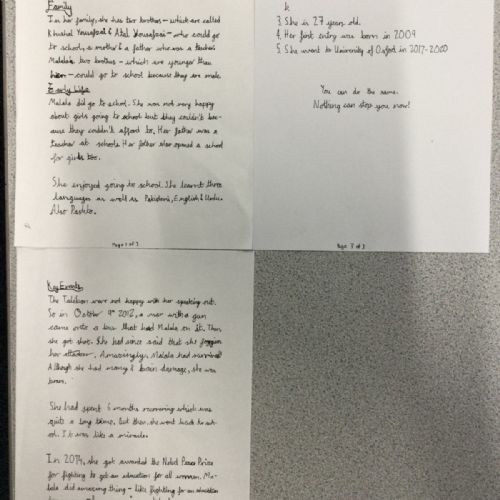 Family
In her family, she has two brothers - which are called
Khushal Yousafzai & Atal Yousafzai - who could go
to school, a mother & a father who was a teacher.
Malala's two brothers - which are younger than
her - could go to school because they are male.
Early Life
Malala did go to school. She was not very happy
about girls going to school but they couldn't bec-
ause they couldn't afford to. Her father was a
teacher at schools. Her father also opened a school
for girls too.
She enjoyed going to school. She learnt three
languages as well as Pakistani, English & Urdu.
Also Pashto.
Page 1 of 3
Key Events
The Taleban were not happy with her speaking out.
So in October 9th 2012, a man with a gun
came onto a bus that had Malala on it. Then,
she got shot. She had since said that she forgives
her attacker. Amazingly, Malala had survived
Although she had many & brain damage, she was
She had spent 6 months recovering which was
quite a long time. But then, she went back to sch-
ool. It was like a miracle.
In 2014, she got awarded the Nobel Peace Prize
for fighting to get an education for all women. Ma-
lala did amazing thing - like fighting for an education
3. She is 27 years old.
4. Her first entry was born in 2009
5. She went to University of Oxford in 2017-2020
You can do the same.
Nothing can stop you now!
Page 3 of 3